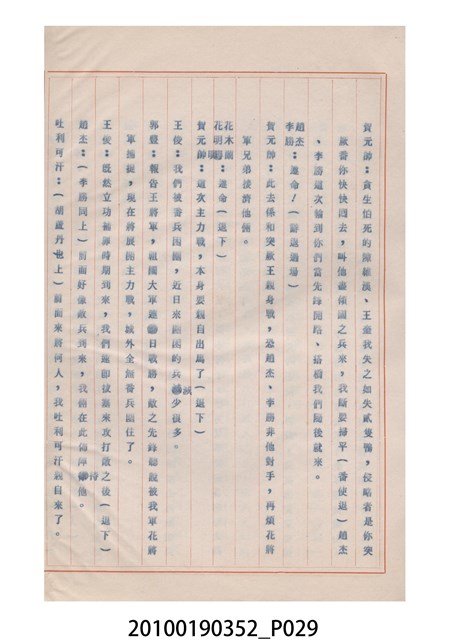 賀元帥：貪生怕死的陳總漢、王豪我失之如失貳隻鴨，侵略者是你突
厥番你快快囘去，叫他盡傾國之兵來，我願要掃平（番使退）趙杰
、李勝這次輪到你們當先鋒開路、搭橋我們隨後就來。
趙杰
李勝：遵命！（爵退過場）
賀元帥：此去係和突厥王親身戰，恐趙杰、李勝非他對手，再煩花將
軍兄弟後濟他倆。
花木蘭
花明：遵命（退下）
賀元帥：這次主力戰，本身要親自出馬了（退下）
王俊：我們被番兵困圍，近日來圍困的兵減少很多。
郭豐：報告王將軍，祖國大軍連日戰勝，敵之先鋒聽說被我軍花將
軍擒捉，現在將展開主力戰，城外全無番兵踪仕了。
王俊：既然立功補罪時期到來，我們速即拔寨來攻打敵之後（退下）
趙杰：（李勝同上）前面好像敵兵到來，我倆在此佈陣待他。
吐利可汗：（胡蘆丹也上）前面來將何人，我吐利可汗親自來了。
20100190352_P029